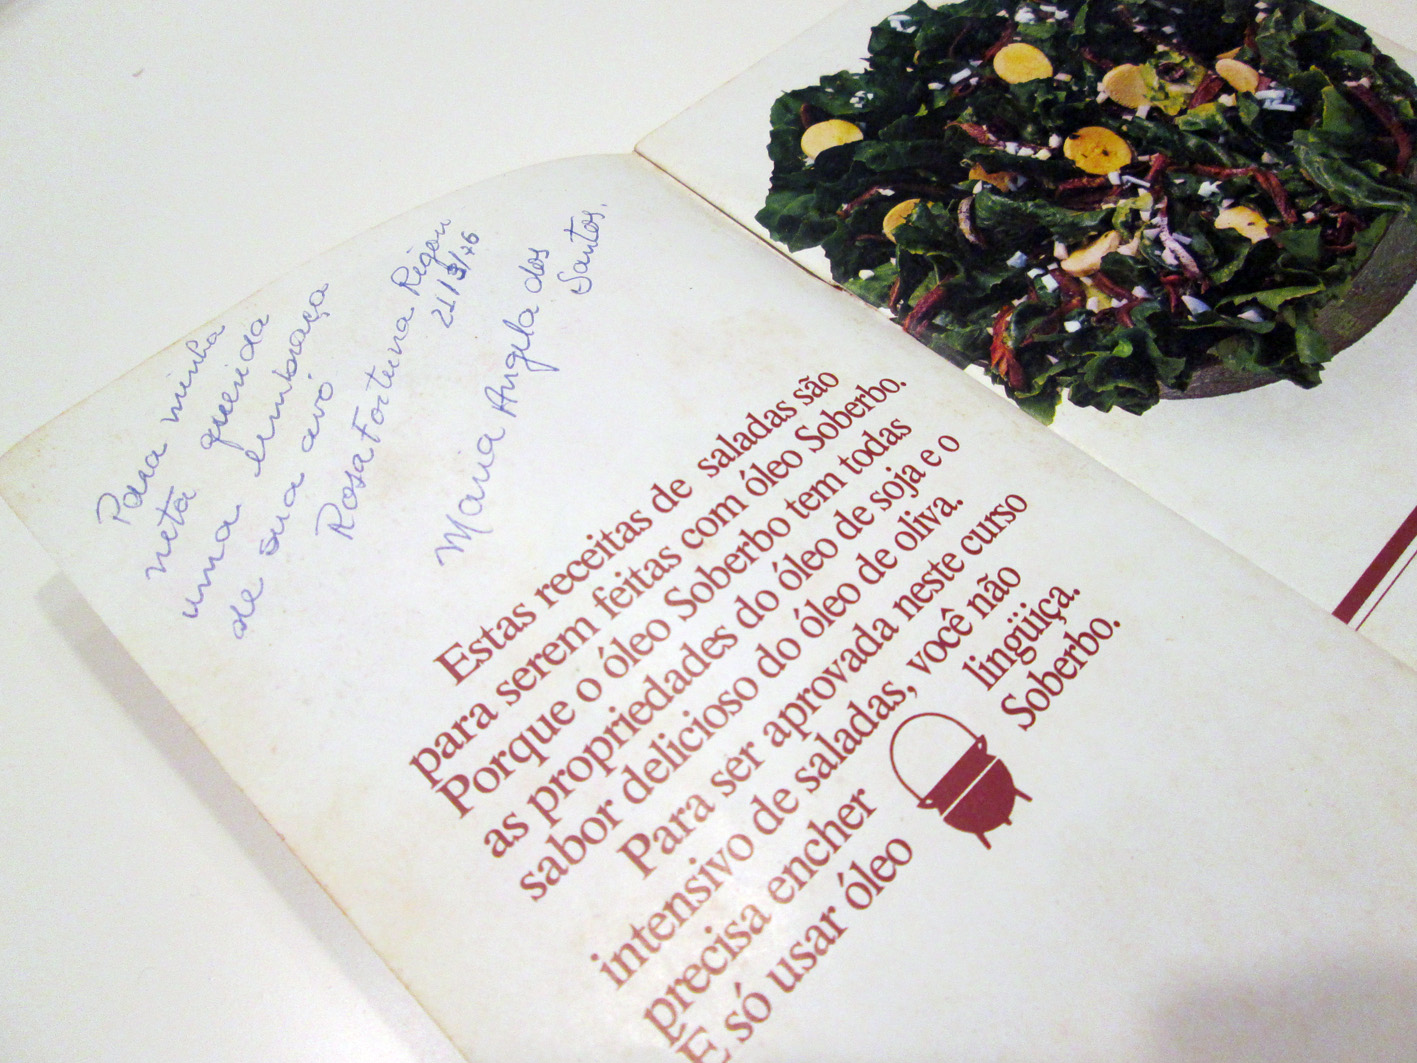 Para minha
neta querida
uma lembraça
de sua avó
Rosa Fortuna Rigon
21/3/76
Maria Angela dos
Santos.
Estas receitas de saladas são
para serem feitas com óleo Soberbo.
Porque o óleo Soberbo tem todas
as propriedades do óleo de soja e o
sabor delicioso do óleo de oliva.
Para ser aprovada neste curso
intensivo de saladas, você não
precisa encher lingüiça.
E só usar óleo Soberbo.